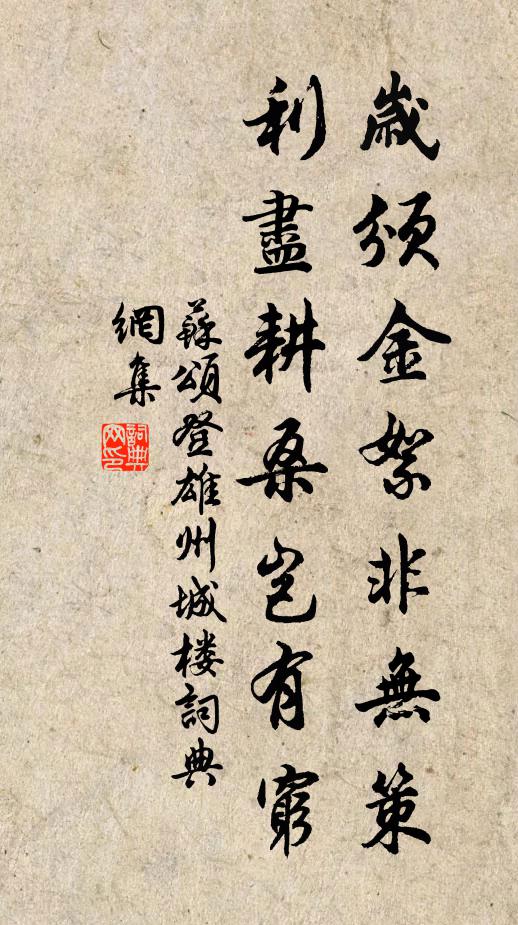 歲頒金絮非無策
利盡耕桑豈有窮
蘇頌登雄州城楼詞典
網集
詞典
网印